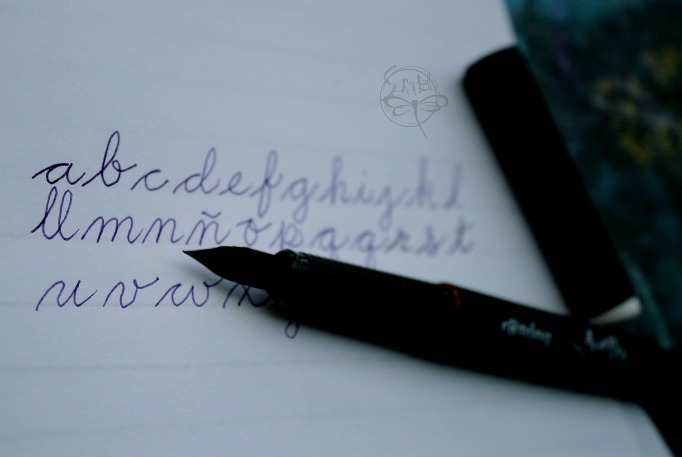 a b c d e f g h i j k l
ll m n ñ o p q q r s t
u v w x
rotring